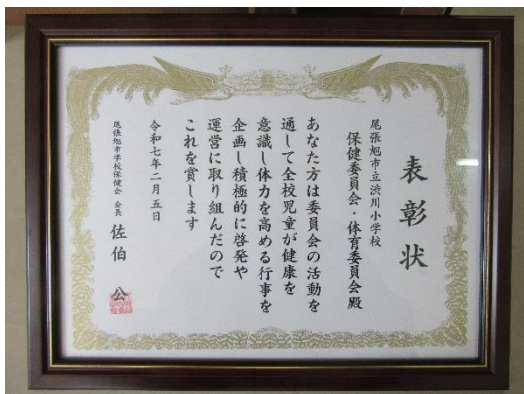 表彰状
尾張旭市立渋川小学校
保健委員会・体育委員会殿
あなた方は委員会の活動を
通して全校児童が健康を
意識し体力を高める行事を
企画し積極的に啓発や
運営に取り組んだので
これを賞します
令和七年二月五日
尾張旭市学校保健会 会長 佐伯 公